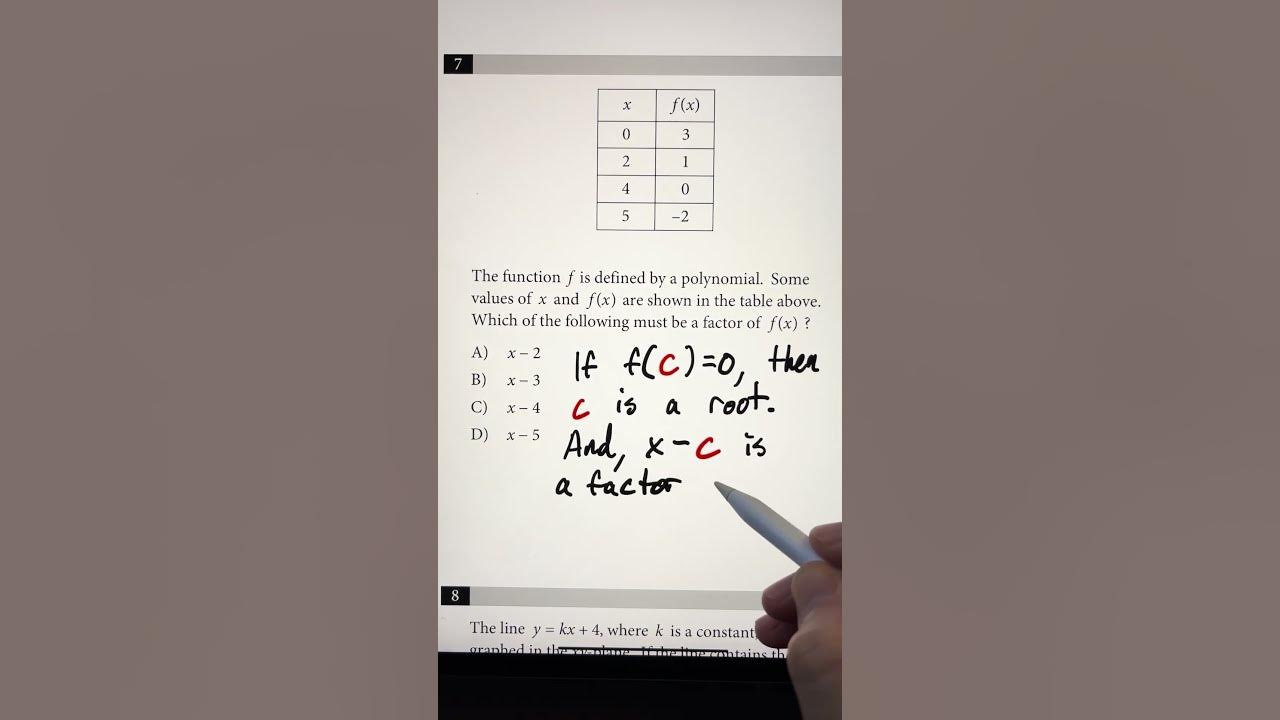 7
x f(x)
0 3
2 1
4 0
5 –2
The function f is defined by a polynomial. Some
values of x and f(x) are shown in the table above.
Which of the following must be a factor of f(x) ?
A) x – 2
B) x – 3
C) x – 4
D) x – 5
If f(c)=0, then
c is a root.
And, x – c is
a factor
8
The line y = kx + 4, where k is a constant,
graphed in the xy-plane. If the line contains th